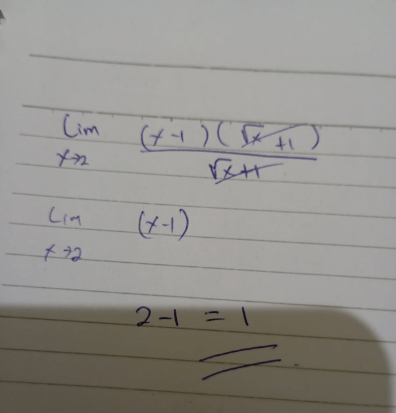 Lim (x-1)(√x+1)
x→2 √x+1
Lim (x-1)
x→2
2-1 = 1